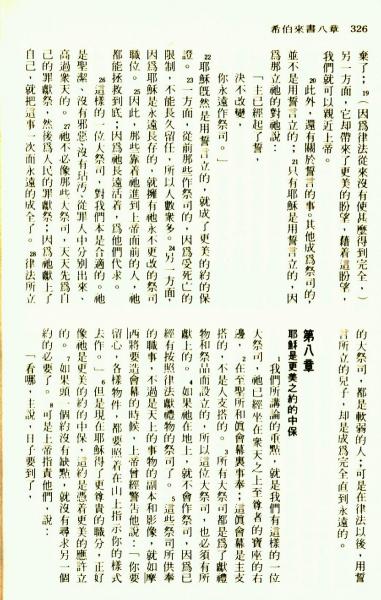 希伯來書八章 326
棄了；19（因爲律法從來沒有使甚麼得到完全，）
另一方面，它却帶來了更美的盼望，藉着這盼望，
我們就可以親近上帝。
20此外，還有關於誓言的事。其他成爲祭司的，
並不是用誓言立的，21只有耶穌是用誓言立的，因
爲那立祂的對祂說：
「主已經起了誓，
決不改變，
你永遠作祭司。」
22耶穌既然是用誓言立的，就成了更美的約的保
證。23一方面，從前那些作祭司的，因爲受死亡的
限制，不能長久留任，所以人數衆多。24另一方面，
因爲耶穌是永遠長存的，就擁有祂永不更改的祭司
職位。25因此，那些靠着祂進到上帝面前的人，祂
都能拯救到底；因爲祂長遠活着，爲他們代求。
26這樣的一位大祭司，對我們本是合適的。祂
是聖潔、沒有邪惡、沒有玷污、從罪人中分別出來、
高過衆天的。27祂不必像那些大祭司，天天先爲自
己的罪獻祭，然後爲人民的罪獻祭；因爲祂獻上了
自己，就把這事一次而永遠的成全了。28律法所立
的大祭司，都是軟弱的人；可是在律法以後，用誓
言所立的兒子，却是成爲完全直到永遠的。
第八章
耶穌是更美之約的中保
1我們所講論的重點，就是我們有這樣的一位
大祭司，祂已經坐在衆天之上至尊者的寶座的右
邊，2在至聖所和眞會幕裏事奉；這眞會幕是主支
搭的，不是人支搭的。3所有大祭司都是爲了獻禮
物和祭品而設立的，所以這位大祭司，也必須有所
獻上的。4如果祂在地上，就不會作祭司，因爲已
經有按照律法獻禮物的祭司了。5這些祭司所供奉
的職事，不過是天上的事物的副本和影像，就如摩
西將要造會幕的時候，上帝曾經警告他說：「你要
留心，各樣物件，都要照着在山上指示你的樣式
去作。」6但是現在耶穌得了更尊貴的職分，正好
像祂是更美的約的中保，這約是憑着更美的應許立
的。7如果頭一個約沒有缺點，就沒有尋求另一個
約的必要了。8可是上帝指責他們，說：
「看哪，主說，日子要到了，